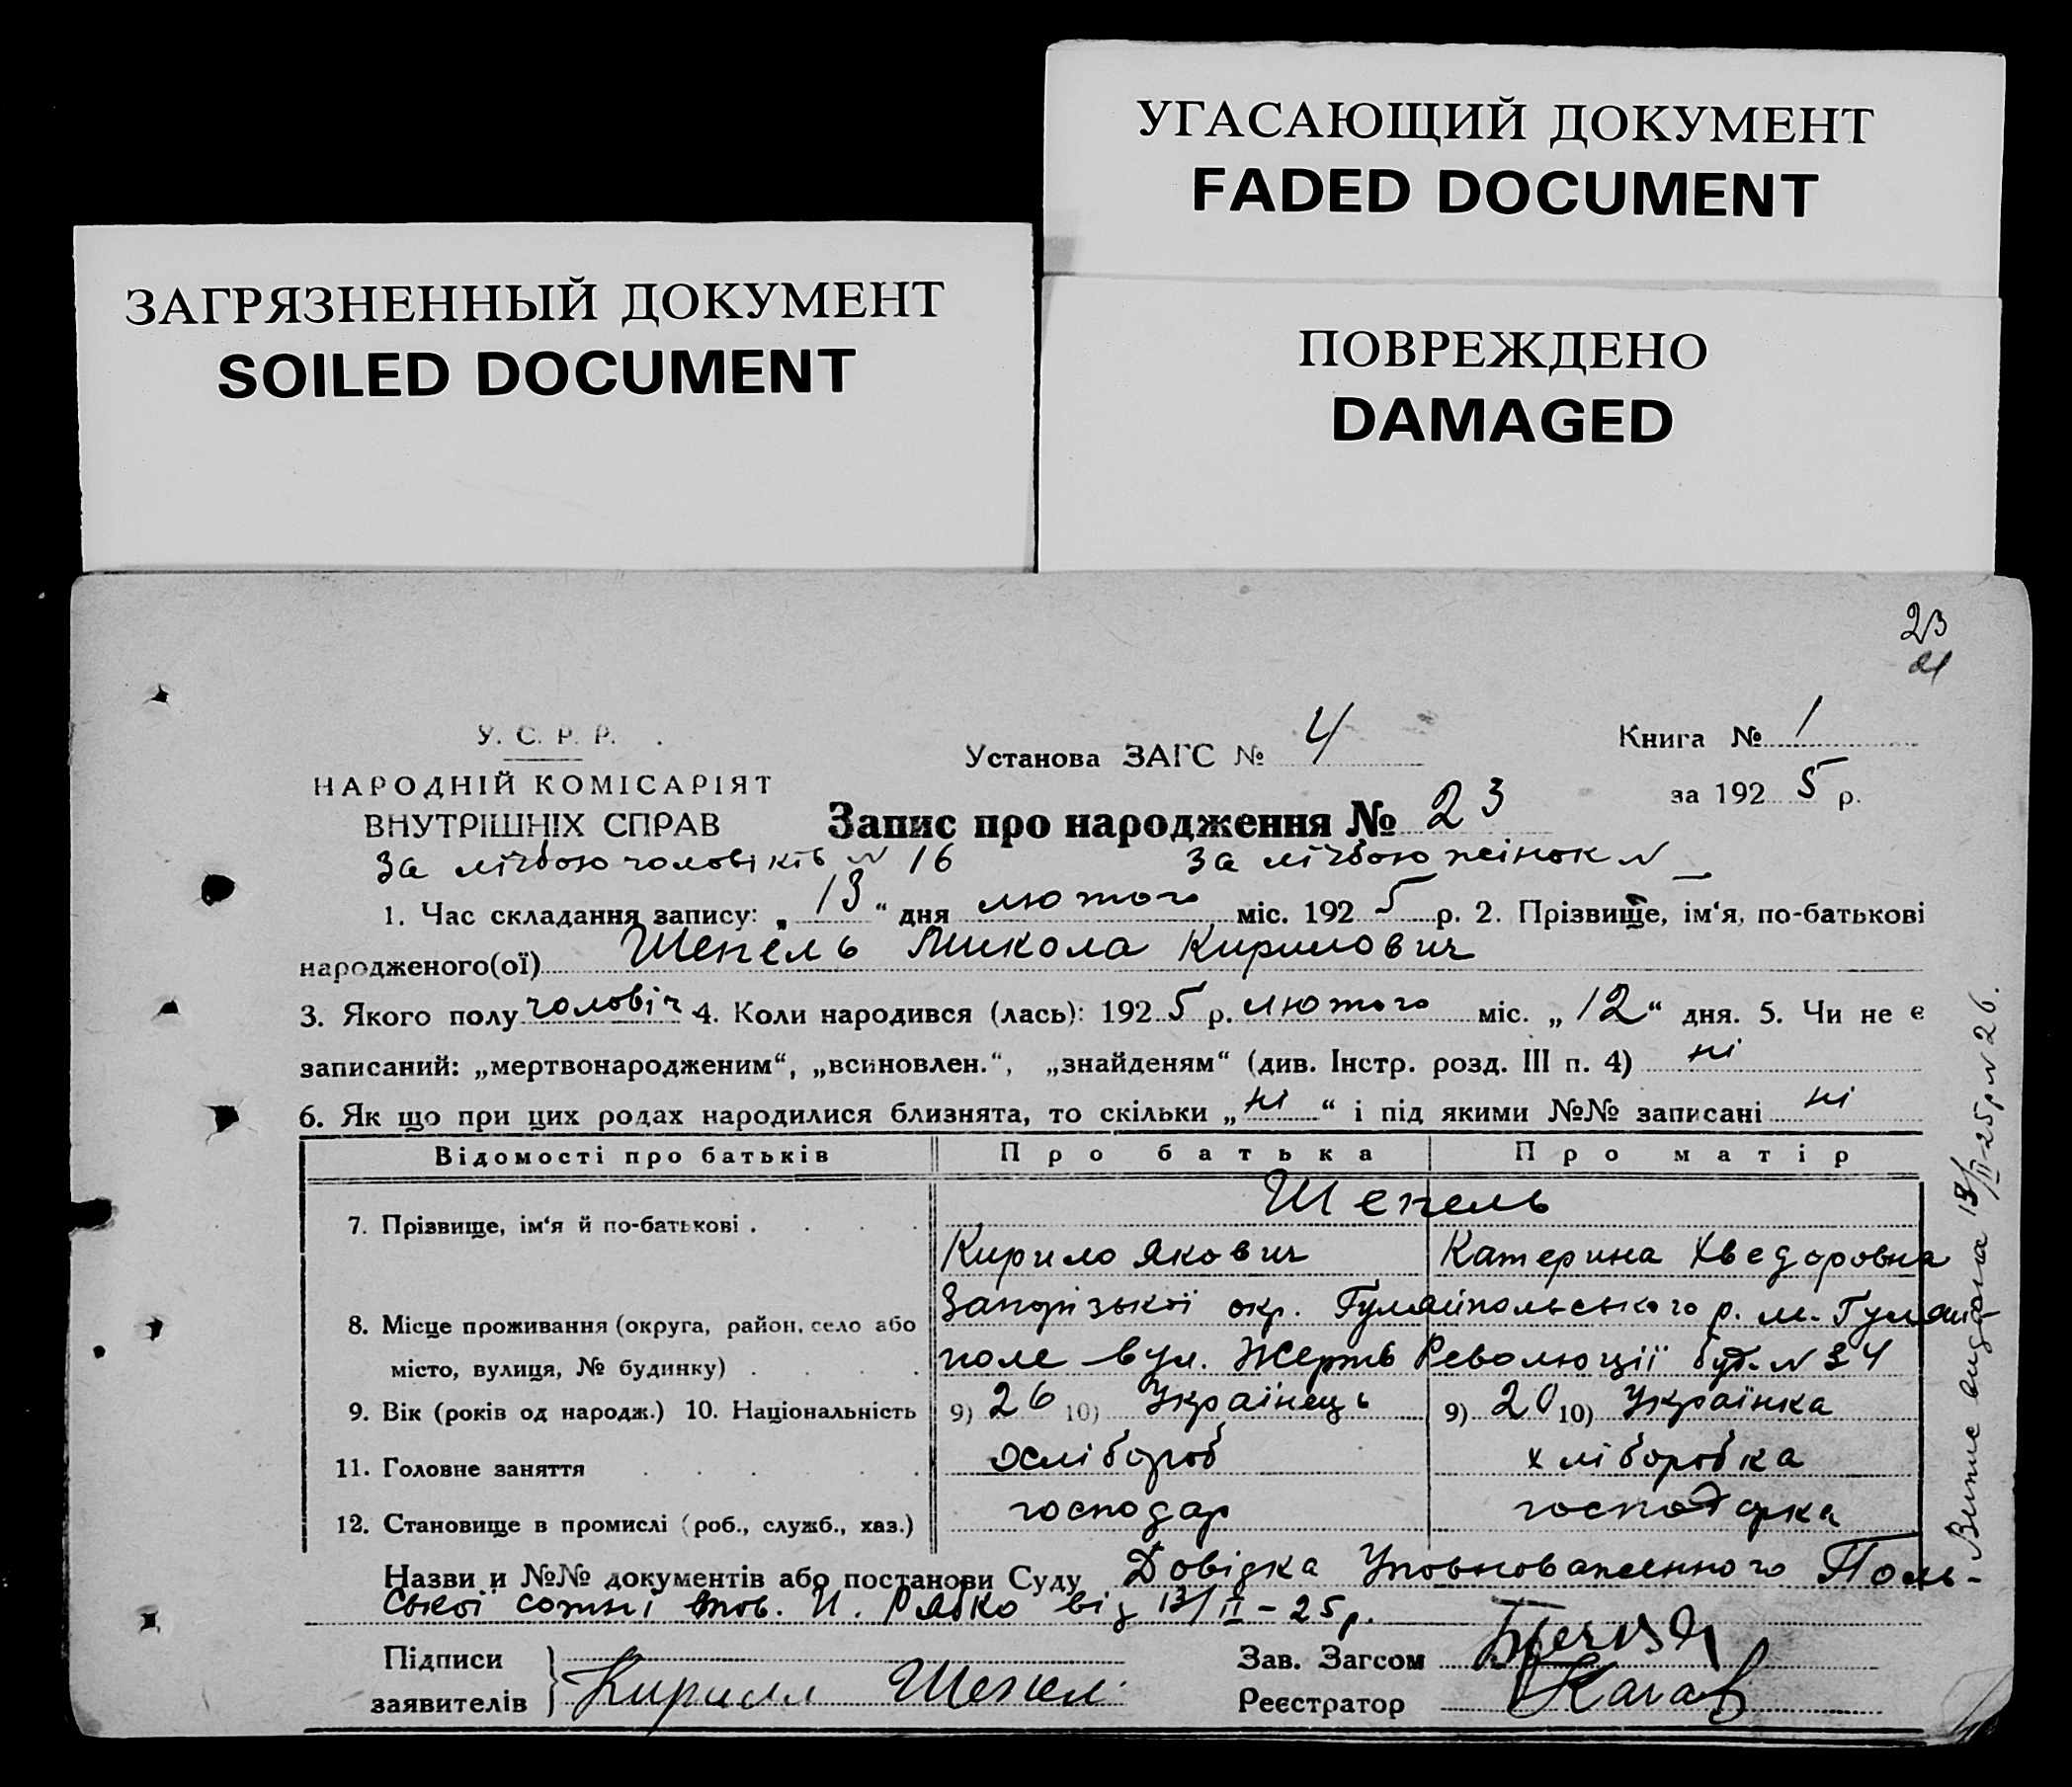 УГАСАЮЩИЙ ДОКУМЕНТ
FADED DOCUMENT
ЗАГРЯЗНЕННЫЙ ДОКУМЕНТ
SOILED DOCUMENT
ПОВРЕЖДЕНО
DAMAGED
23
У. С. Р. Р.
НАРОДНІЙ КОМІСАРІЯТ
ВНУТРІШНІХ СПРАВ
Установа ЗАГС № 4
Книга № 1
за 1925 р.
Запис про народження № 23
За лічбою чоловіків № 16 За лічбою жінок № —
1. Час складання запису: „13“ дня лютого міс. 1925 р. 2. Прізвище, ім'я, по-батькові
народженого(ої) Шепель Микола Кирилович
3. Якого полу чоловіч. 4. Коли народився (лась): 1925 р. лютого міс. „12“ дня. 5. Чи не є
записаний: „мертвонародженим“, „всиновлен.“, „знайденям“ (див. Інстр. розд. III п. 4) ні
6. Як що при цих родах народилися близнята, то скільки „ні“ і під якими №№ записані ні
Відомості про батьків Про батька Про матір
7. Прізвище, ім'я й по-батькові . Шепель
Кирило Якович Катерина Хведоровна
8. Місце проживання (округа, район, село або Запорізької окр. Гуляйпольського р. м. Гуляй-
місто, вулиця, № будинку) . поле вул. Жертв Революції буд. № 34
9. Вік (років од народж.) 10. Національність 9) 26 10) Українець 9) 20 10) Українка
11. Головне заняття хлібороб хліборобка
12. Становище в промислі (роб., служб., хаз.) господар господарка
Назви и №№ документів або постанови Суду Довідка Уповноваженного Поль-
ської сотні тов. И. Рябко від 13/II – 25 р.
Підписи
заявителів Кирилл Шепел
Зав. Загсом
Реєстратор
Витис видана 13/II-25 р. № 26.